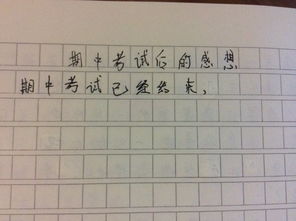 期中考试后的感想
期中考试已经结束，